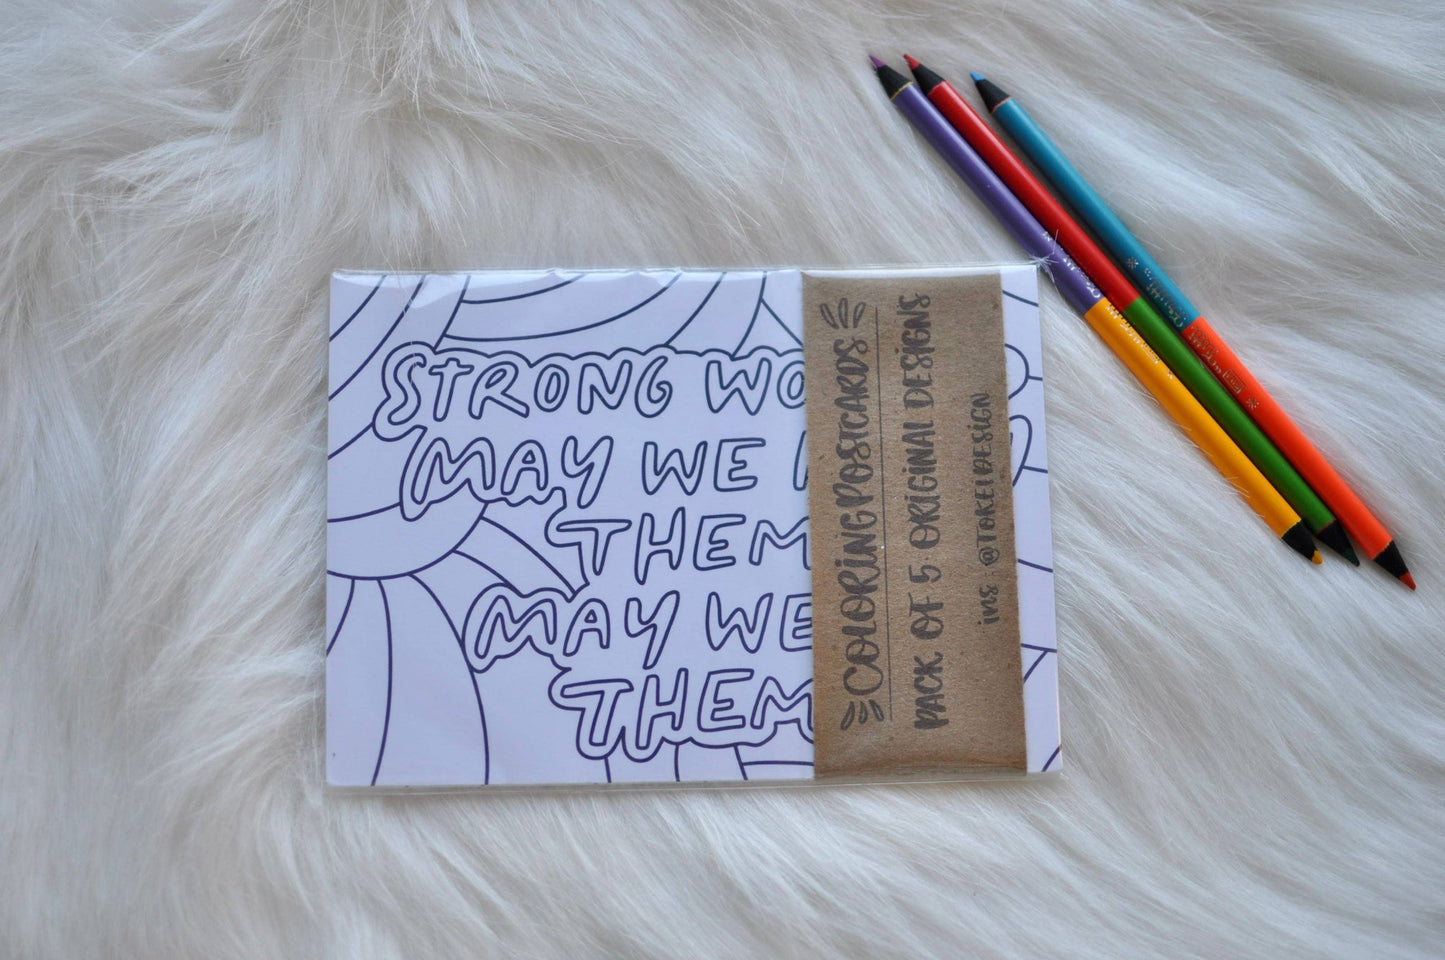 STRONG WO
MAY WE
THEM
MAY WE
THEM
COLORING POSTCARDS
PACK OF 5 ORIGINAL DESIGNS
ins @TOKEIDESIGN